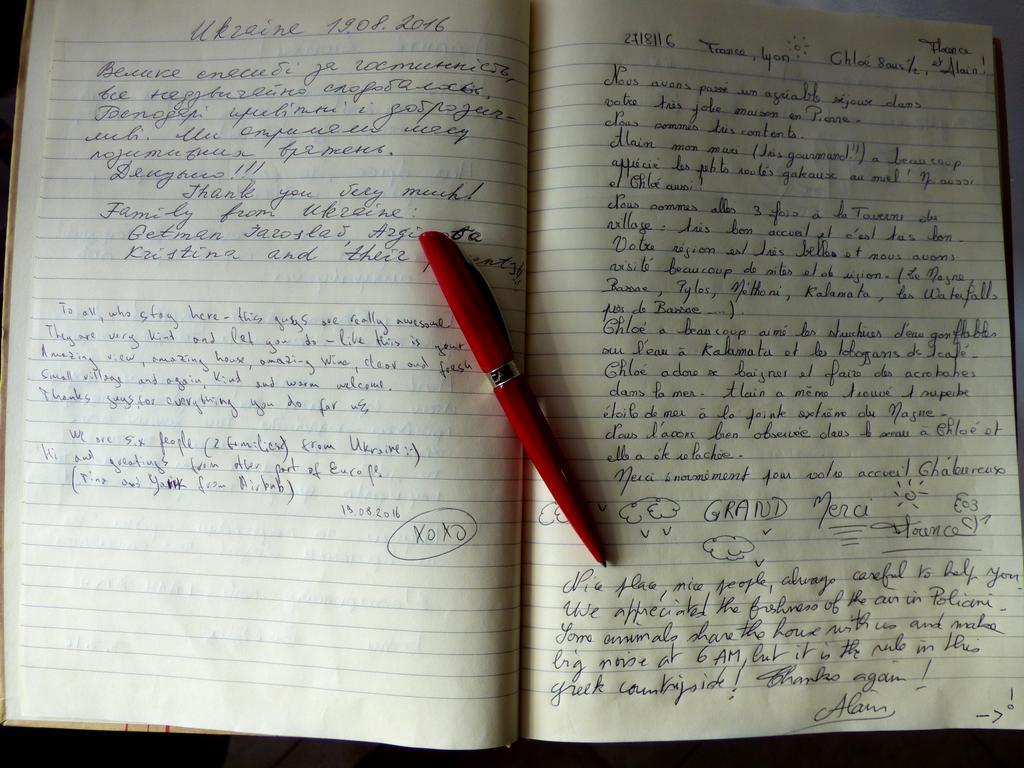 Ukraine 19.08.2016
Велике спасибі за гостинність,
все надзвичайно сподобалось.
Господарі привітні і доброзич-
ливі. Ми отримали масу
позитивних вражень.
Дякуємо!!!
Thank you very much!
Family from Ukraine:
Getman Jaroslav,
Kristina and their
To all, who stay here - this guys are really awesome
They are very kind and let you do - like this is your
Amazing view, amazing house, amazing wine, clear and fresh
small village and again kind and warm welcome.
Thanks guys, for everything you do for us,
We are six people (2 families) from Ukraine :)
Hi and greetings from other part of Europe.
(Tina and from Airbnb)
19.08.2016
XOXO
27/8/16 France, Lyon Chloé 8ans 1/2, Florence et Alain!
Nous avons passé un agréable séjour dans
votre très jolie maison en Pierre.
Nous sommes très contents.
Alain mon mari (très gourmand!!) a beaucoup
apprécié les petits roulés gateaux au miel! Moi aussi
et Chloé aussi!
Nous sommes allés 3 fois à la Taverne du
village: très bon accueil et c'est très bon.
Votre région est très belles et nous avons
visité beaucoup de sites et de région. (Le Magne
Bassae, Pylos, Méthoni, Kalamata, les Waterfalls
près de Bassae ....).
Chloé a beaucoup aimé les structures d'eau gonflables
sur l'eau à Kalamata et les toboggans du café.
Chloé adore se baigner et faire des acrobaties
dans la mer. Alain a même trouvé 1 superbe
étoile de mer à la pointe extrême du Magne.
Nous l'avons bien observée dans le seau à Chloé et
elle a été relachée.
Merci énormément pour votre accueil Chaleureux
GRAND Merci
Florence
Nice place, nice people, always careful to help you.
We appreciated the freshness of the air in Poliani.
Some animals share the house with us and make
big noise at 6 AM, but it is the rule in this
greek countryside! Thanks again!
Alain